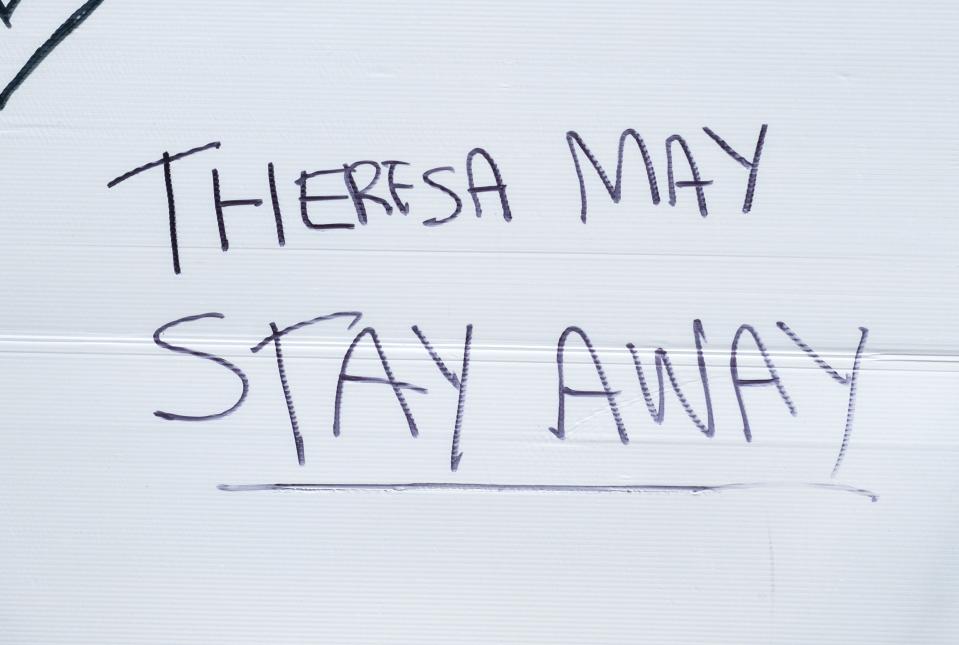 THERESA MAY
STAY AWAY